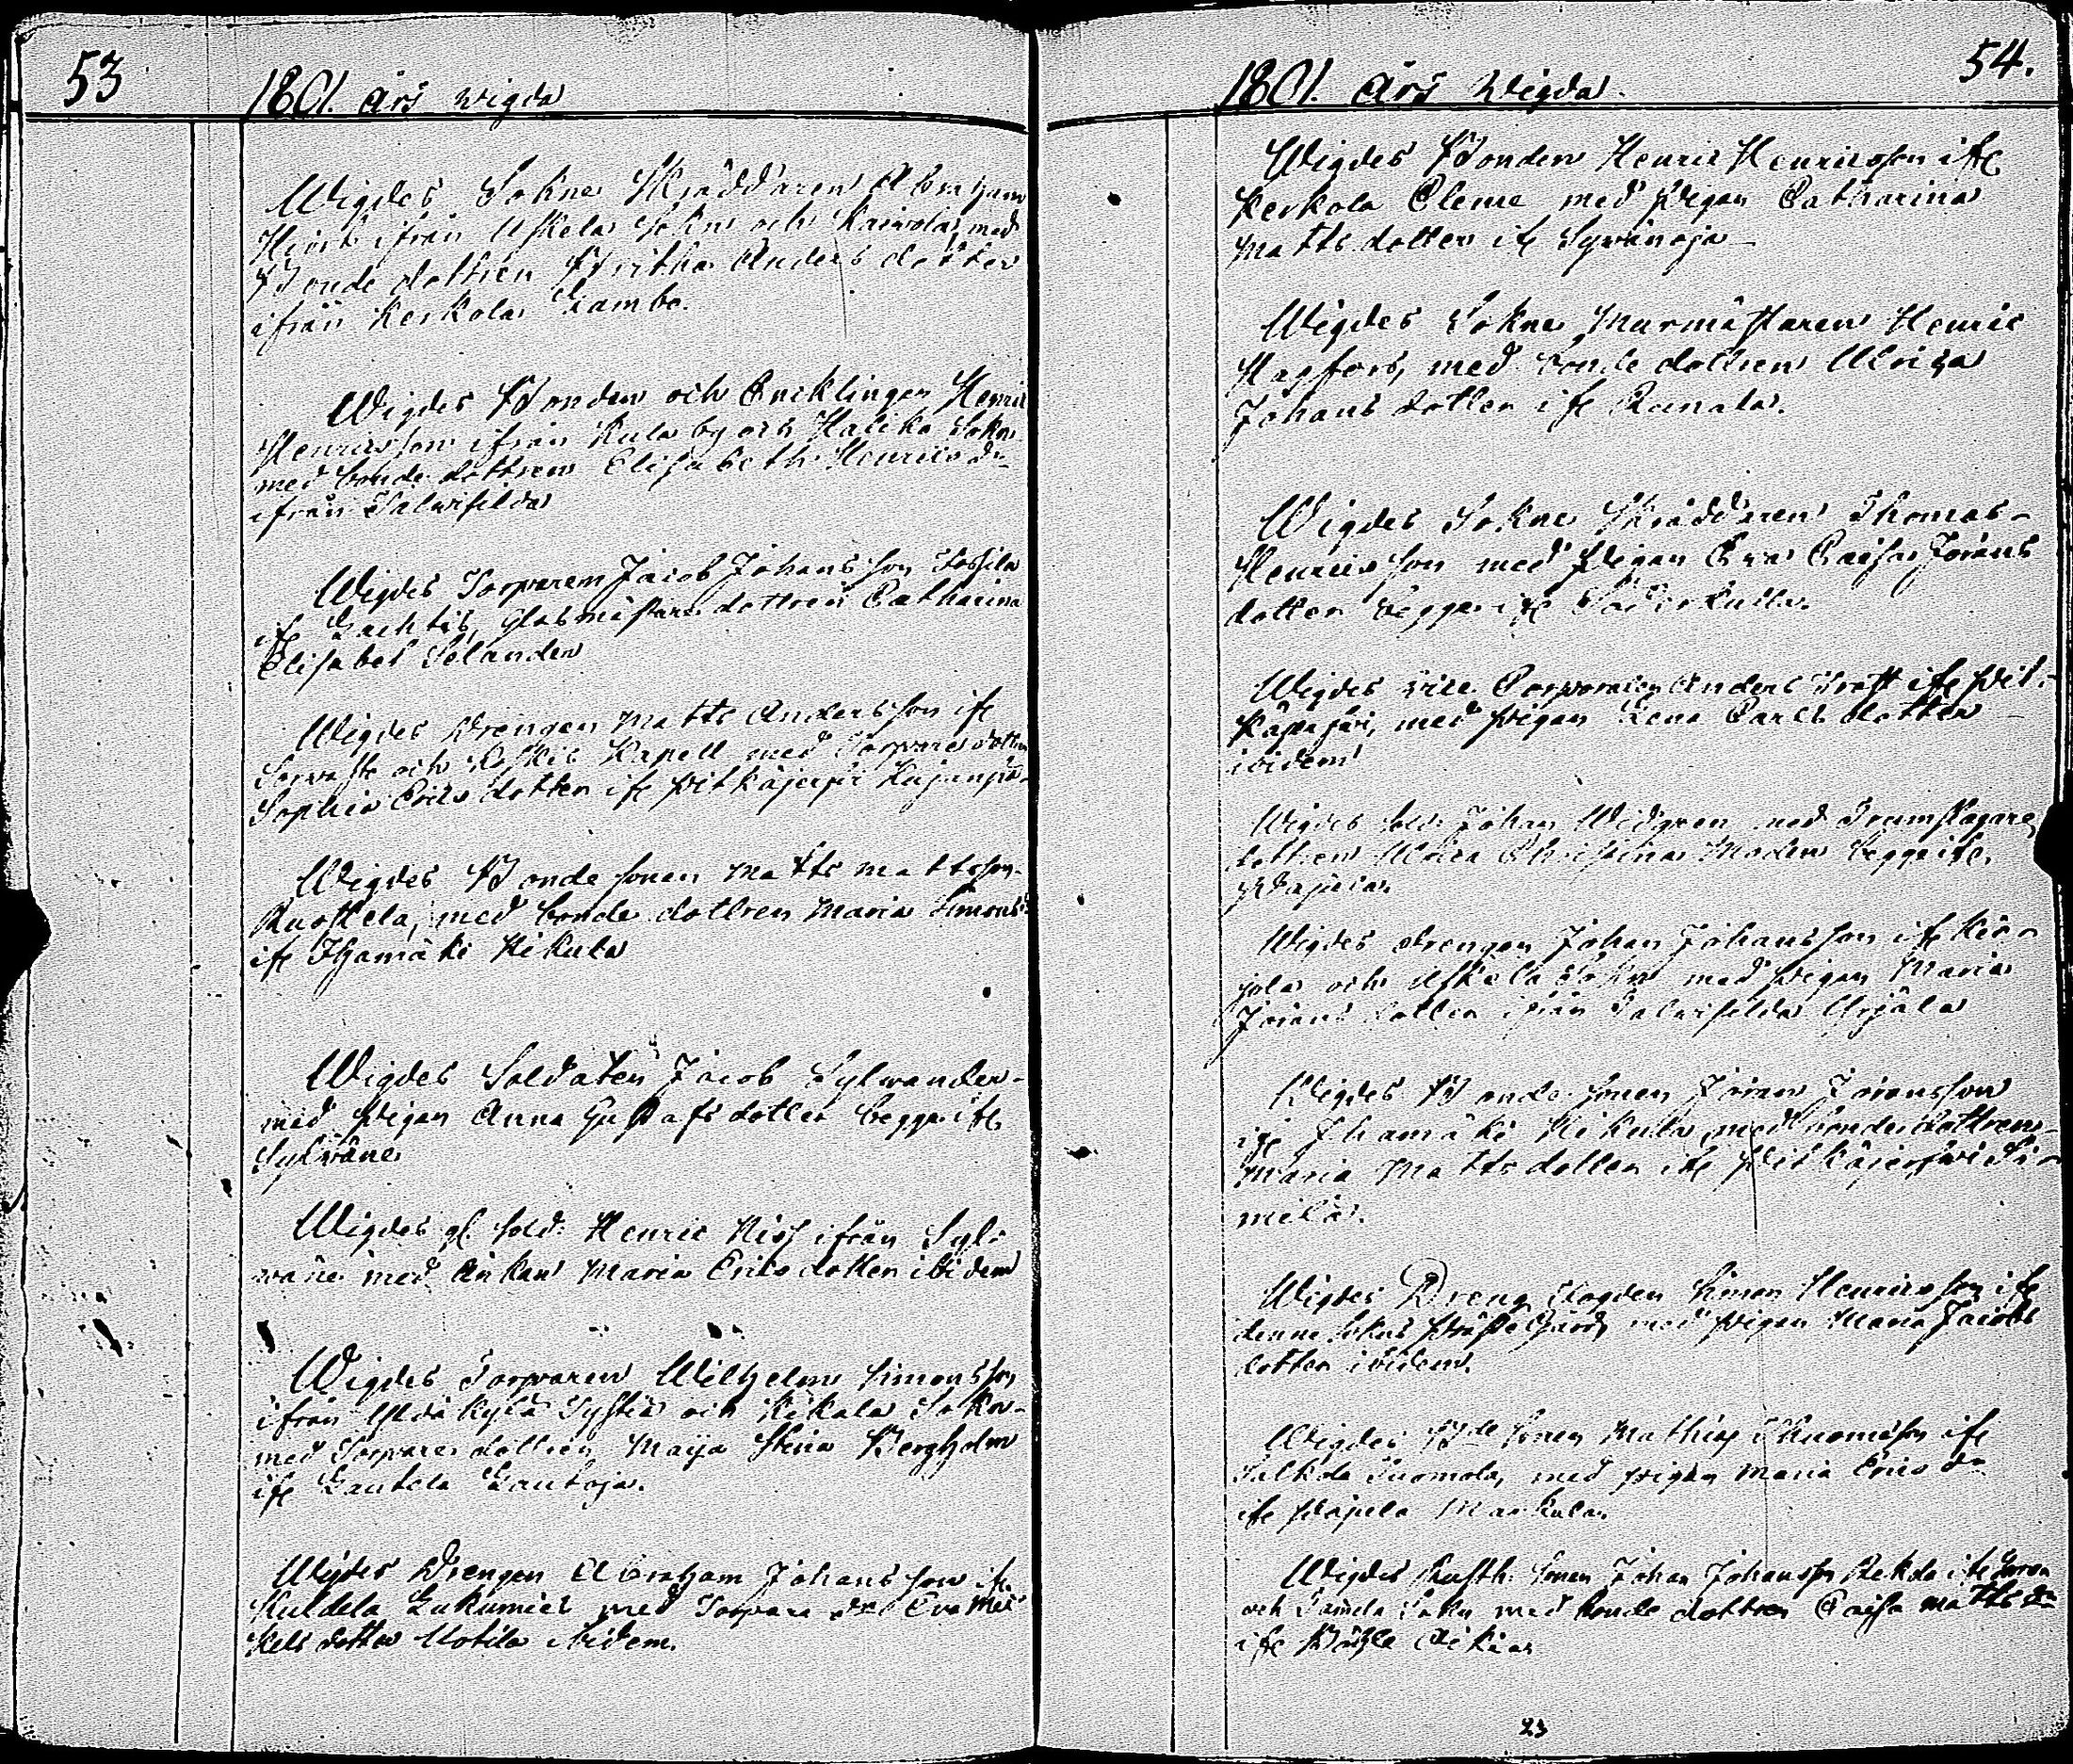 53
1801. års wigda
Wigdes Sokne Skräddaren Abraham
Hiort ifrån Uskela Sokn och Kaivola, med
Bonde dottren Britha Anders dotter
ifrån Kerkola Lambo.
Wigdes Bonden och Encklingen Henric
Henricsson ifrån Kula by och Haliko Sokn
med bonde dottren Elisabeth Henrics dr
ifrån Salwifilda
Wigdes Torparen Jacob Johansson
ifr Lachtis, Glasmästare dottren Catharina
Elisabet Selander
Wigdes Drengen Matts Andersson ifr
Sorvasto och Koskis Kapell med Torpare dottren
Sophia Erics dotter ifr Pitkäjerfvi
Wigdes Bonde sonen Matts Mattsson
Ruostela, med bonde dottren Maria Simons
ifr Ihamäki Hikula
Wigdes Soldaten Jacob Sylvander
med Pigan Anna Gustafs dotter begge ifr
Sylväne
Wigdes gl. Sold: Henric Hisp ifrån Syl-
väne med Änkan Maria Erics dotter ibidem
Wigdes Torparen Wilhelm Simonsson
ifrån Yldäkylä och Kikala Sokn
med Torpare dottren Maija Stina Bergholm
ifr Lautela Lautoja.
Wigdes Drengen Abraham Johansson ifr
Kuldela Lukumies med Torpare dr Eva Mic
kels dotter Uotila ibidem.
54.
1801. års Wigda
Wigdes Bonden Henric Henricsson ifr
Kerkola Cleme med Pigan Catharina
Matts dotter ifr Syvänoja
Wigdes Sokne Murmästaren Henric
Hagfors, med bonde dottren Ulrica
Johans dotter ifr Runala.
Wigdes Sokne Skräddaren Thomas
Henricsson med Pigan Eva Caisa Jörans
dotter begge ifr Söderkulla.
Wigdes vice Corporalen Anders Trast ifr Pit-
käjerfvi, med Pigan Lena Carls dotter
ibidem
Wigdes Sold: Johan Widgren med Trumslagare
dottren Ulrica Christina Moden begge ifr
Wigdes drengen Johan Johansson ifr Kär-
jola och Uskela Sokn med Pigan Maria
Jörans dotter ifrån Salwifilda Yrjälä
Wigdes Bonde sonen Jöran Jöransson
ifr Ihamäki Hikula, med bonde dottren
Maria Matts dotter ifr Pitkäjerfvi Sir-
milä.
Wigdes Dreng Fogden Simon Henricsson ifr
denne Sokns Prästegård, med Pigan Maria Jacobs
dotter ibidem.
Wigdes Bde sonen Mathias Thomasson ifr
Salkola Tuomola, med Pigan Maria Erics dr
ifr Markula.
Wigdes Rusth. Sonen Johan Johansson Rekola ifr
och Sokn med bonde dottren Caisa Matts dr
ifr
23